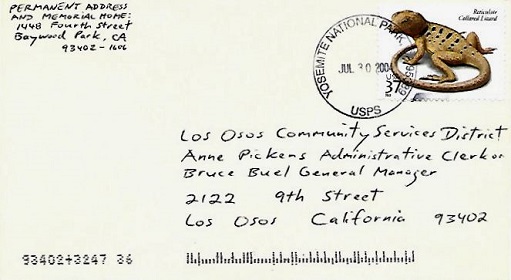 PERMANENT ADDRESS
AND MEMORIAL HOME:
1448 Fourth Street
Baywood Park, CA
93402-1606
Reticulate
Collared Lizard
YOSEMITE NATIONAL PARK,
JUL 30 2004
USPS
37
USA
Los Osos Community Services District
Anne Pickens Administrative Clerk or
Bruce Buel General Manager
2122 9th Street
Los Osos California 93402
93402+3247 36